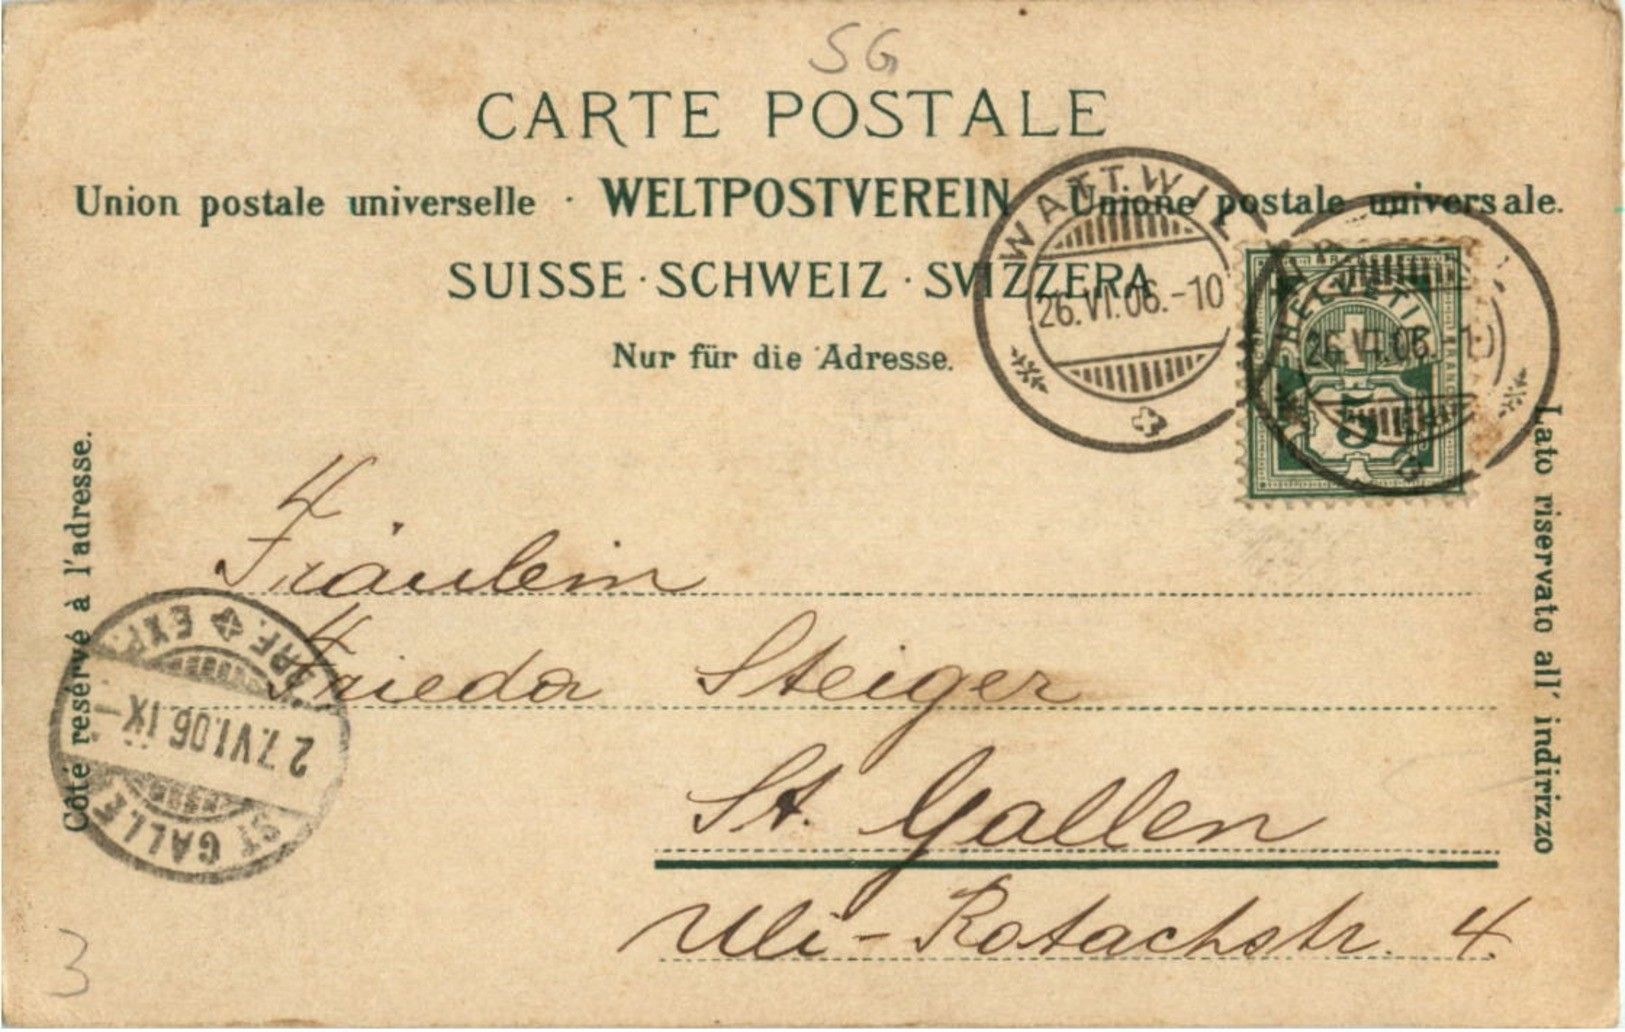 SG
CARTE POSTALE
Union postale universelle · WELTPOSTVEREIN · Unione postale universale.
SUISSE · SCHWEIZ · SVIZZERA
Nur für die Adresse.
WATTWIL
26.VI.06.-10
HELVETIA
FRANCO
26.VI.06.
5
Côté reservé à l'adresse.
Lato riservato all' indirizzo
Fräulein
Frieda Steiger
St. Gallen
Uli-Rotachstr. 4.
ST GALLEN
27.VI.06 IX-
EXP.
3